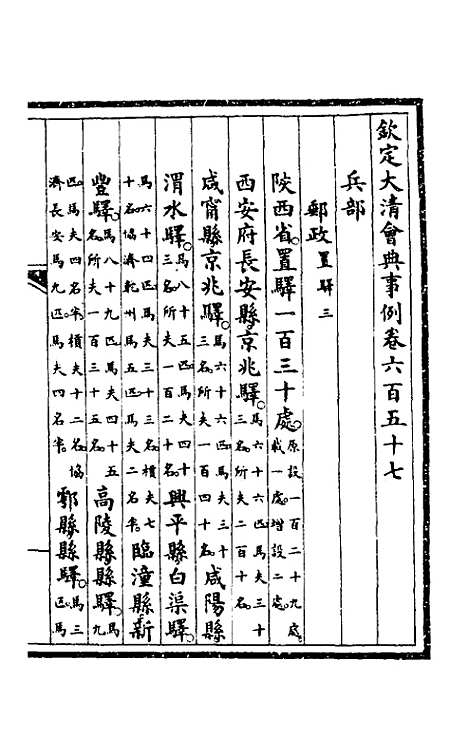 欽定大清會典事例卷六百五十七
兵部
郵政置驛三
陝西省置驛一百三十處。原設一百二十九處。裁一處。增設二處。
西安府長安縣京兆驛。馬六十六匹。馬夫三十三名。所夫二百十名。
咸甯縣京兆驛。馬六十六匹。馬夫三十三名。所夫一百四十名。咸陽縣
渭水驛。馬八十五匹。馬夫四十三名。所夫一百二十名。興平縣白渠驛。
馬六十四匹。馬夫三十三名。槓夫七十名。協濟乾州馬五匹。馬夫二名半。臨潼縣新
豐驛。馬八十九匹。馬夫四十五名。所夫一百三十五名。高陵縣縣驛。馬九
匹。馬夫四名半。槓夫十二名。協濟長安馬九匹。馬夫四名半。鄠縣縣驛。馬三匹。馬